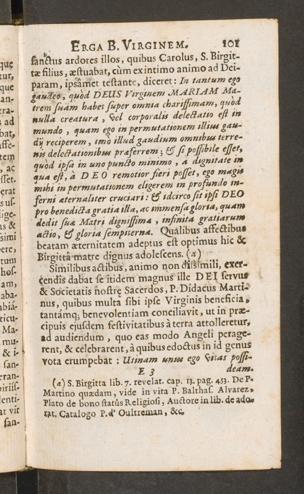 ERGA B. VIRGINEM. 101
sanctus ardores illos, quibus Carolus, S. Birgit-
tæ filius, æstuabat, cùm ex intimo animo ad Dei-
param, ipsâmet testante, diceret: In tantum ego
gaudeo, quòd DEUS Virginem MARIAM Ma-
trem suam habet super omnia charissimam, quòd
nulla creatura, vel corporalis delectatio est in
mundo, quam ego in permutationem illius gau-
dij reciperem, imò illud gaudium omnibus terre-
nis delectationibus præferrem; & si possibile esset,
quòd ipsa in uno puncto minimo, a dignitate in
qua est, à DEO remotior fieri posset, ego magis
mihi in permutationem eligerem in profundo in-
ferni æternaliter cruciari: & idcirco sit ipsi DEO
pro benedicta gratia illa, ac immensa gloria, quam
dedit suæ Matri dignissimæ, infinita gratiarum
actio, & gloria sempiterna. Qualibus affectibus
beatam æternitatem adeptus est optimus hic &
Birgittâ matre dignus adolescens. (a)
Similibus actibus, animo non dissimili, exer-
cendis dabat se itidem magnus ille DEI servus
& Societatis nostræ Sacerdos, P. Didacus Marti-
nus, quibus multa sibi ipse Virginis beneficia,
tantámq; benevolentiam conciliavit, ut in præ-
cipuis ejusdem festivitatibus à terra attolleretur,
ad audiendum, quo eas modo Angeli perage-
rent, & celebrarent, à quibus edoctus in id genus
vota erumpebat: Utinam unus ego vitas possi-
E 3 deam.
(a) S. Birgitta lib. 7. revelat. cap. 13. pag. 453. De P.
Martino quædam, vide in vita P. Balthas. Alvarez.
Plato de bono statûs Religiosi, Auctore in lib. de ado-
rat. Catalogo P. d' Oultreman, &c.